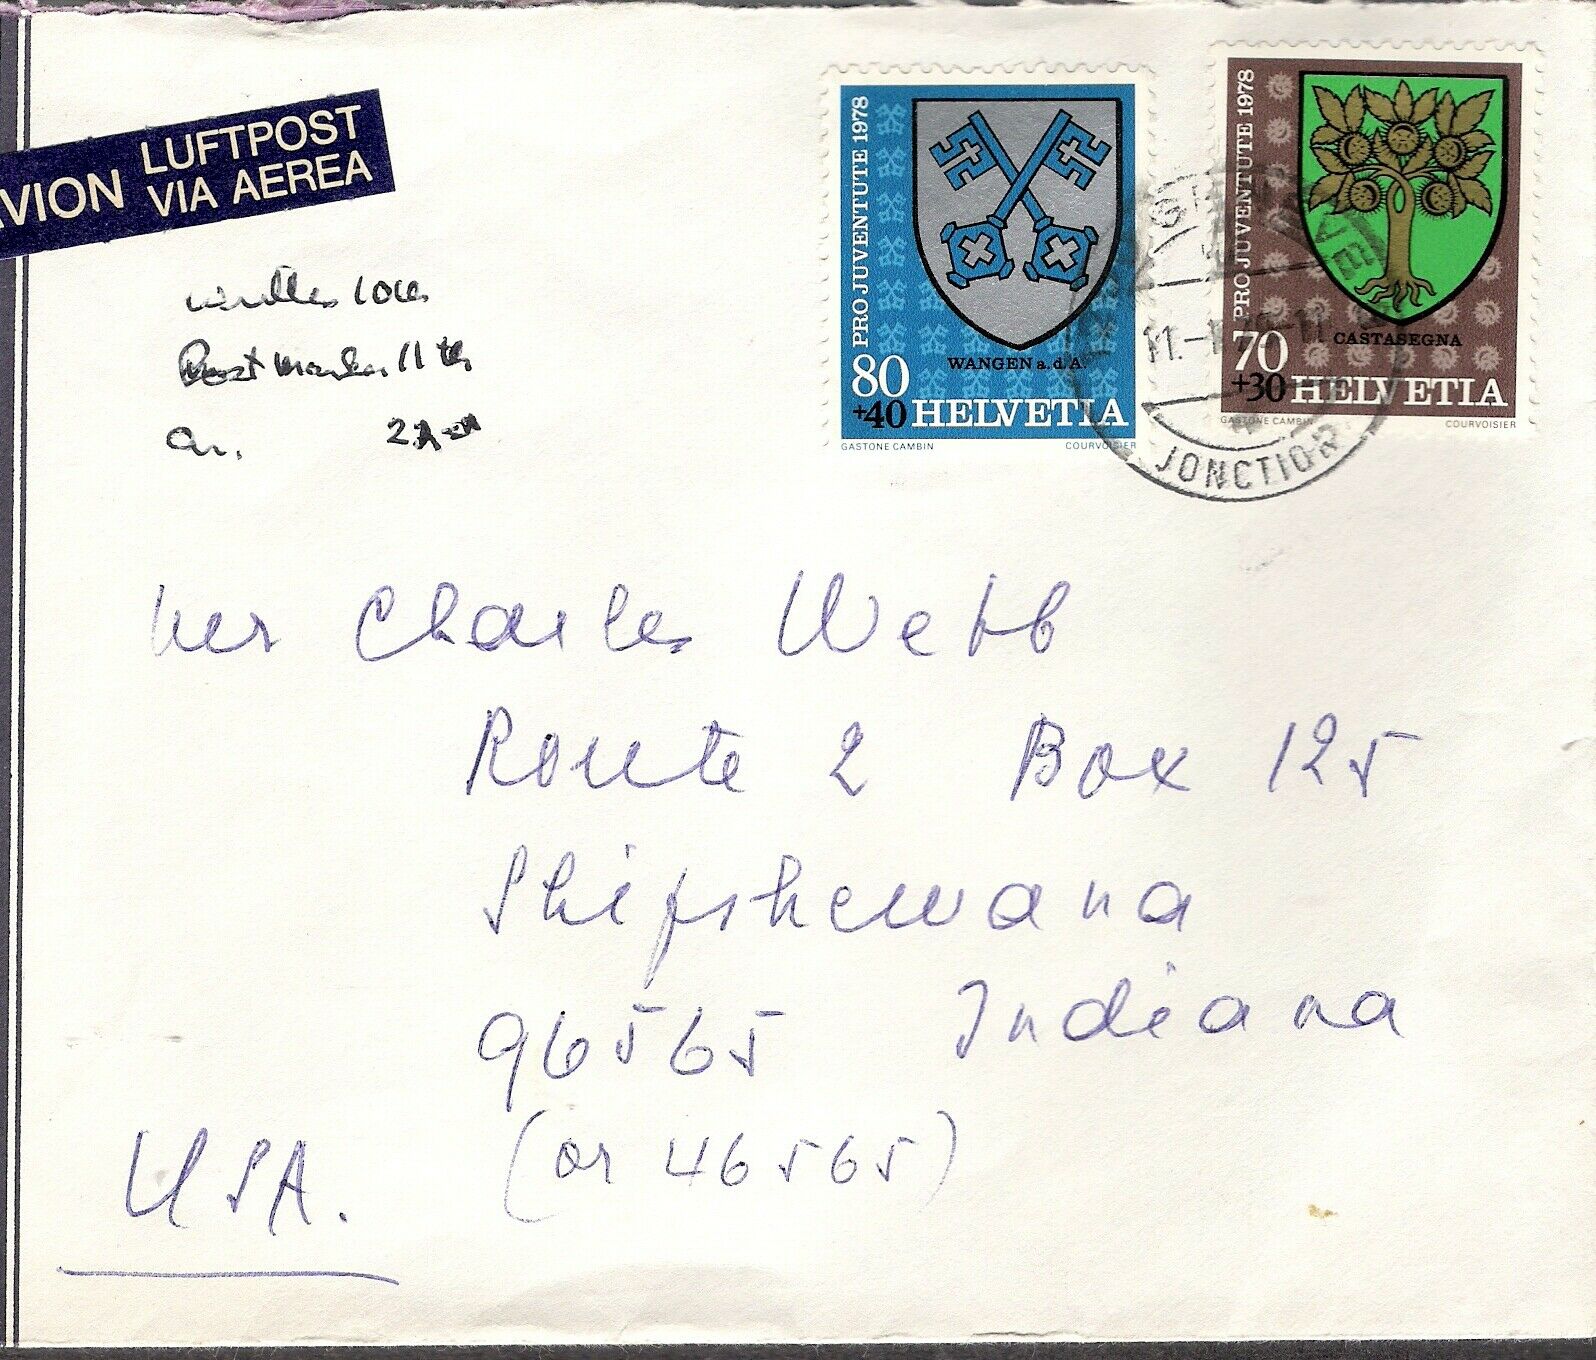 AVION LUFTPOST
VIA AEREA
Postmarked 11th
PRO JUVENTUTE 1978
WANGEN a.d.A.
80
+40 HELVETIA
GASTONE CAMBIN COURVOISIER
PRO JUVENTUTE 1978
CASTASEGNA
70
+30 HELVETIA
GASTONE CAMBIN COURVOISIER
11.-1
JONCTION
Charles Webb
Route 2 Box 125
Shipshewana
96565 Indiana
(or 46565)
USA.